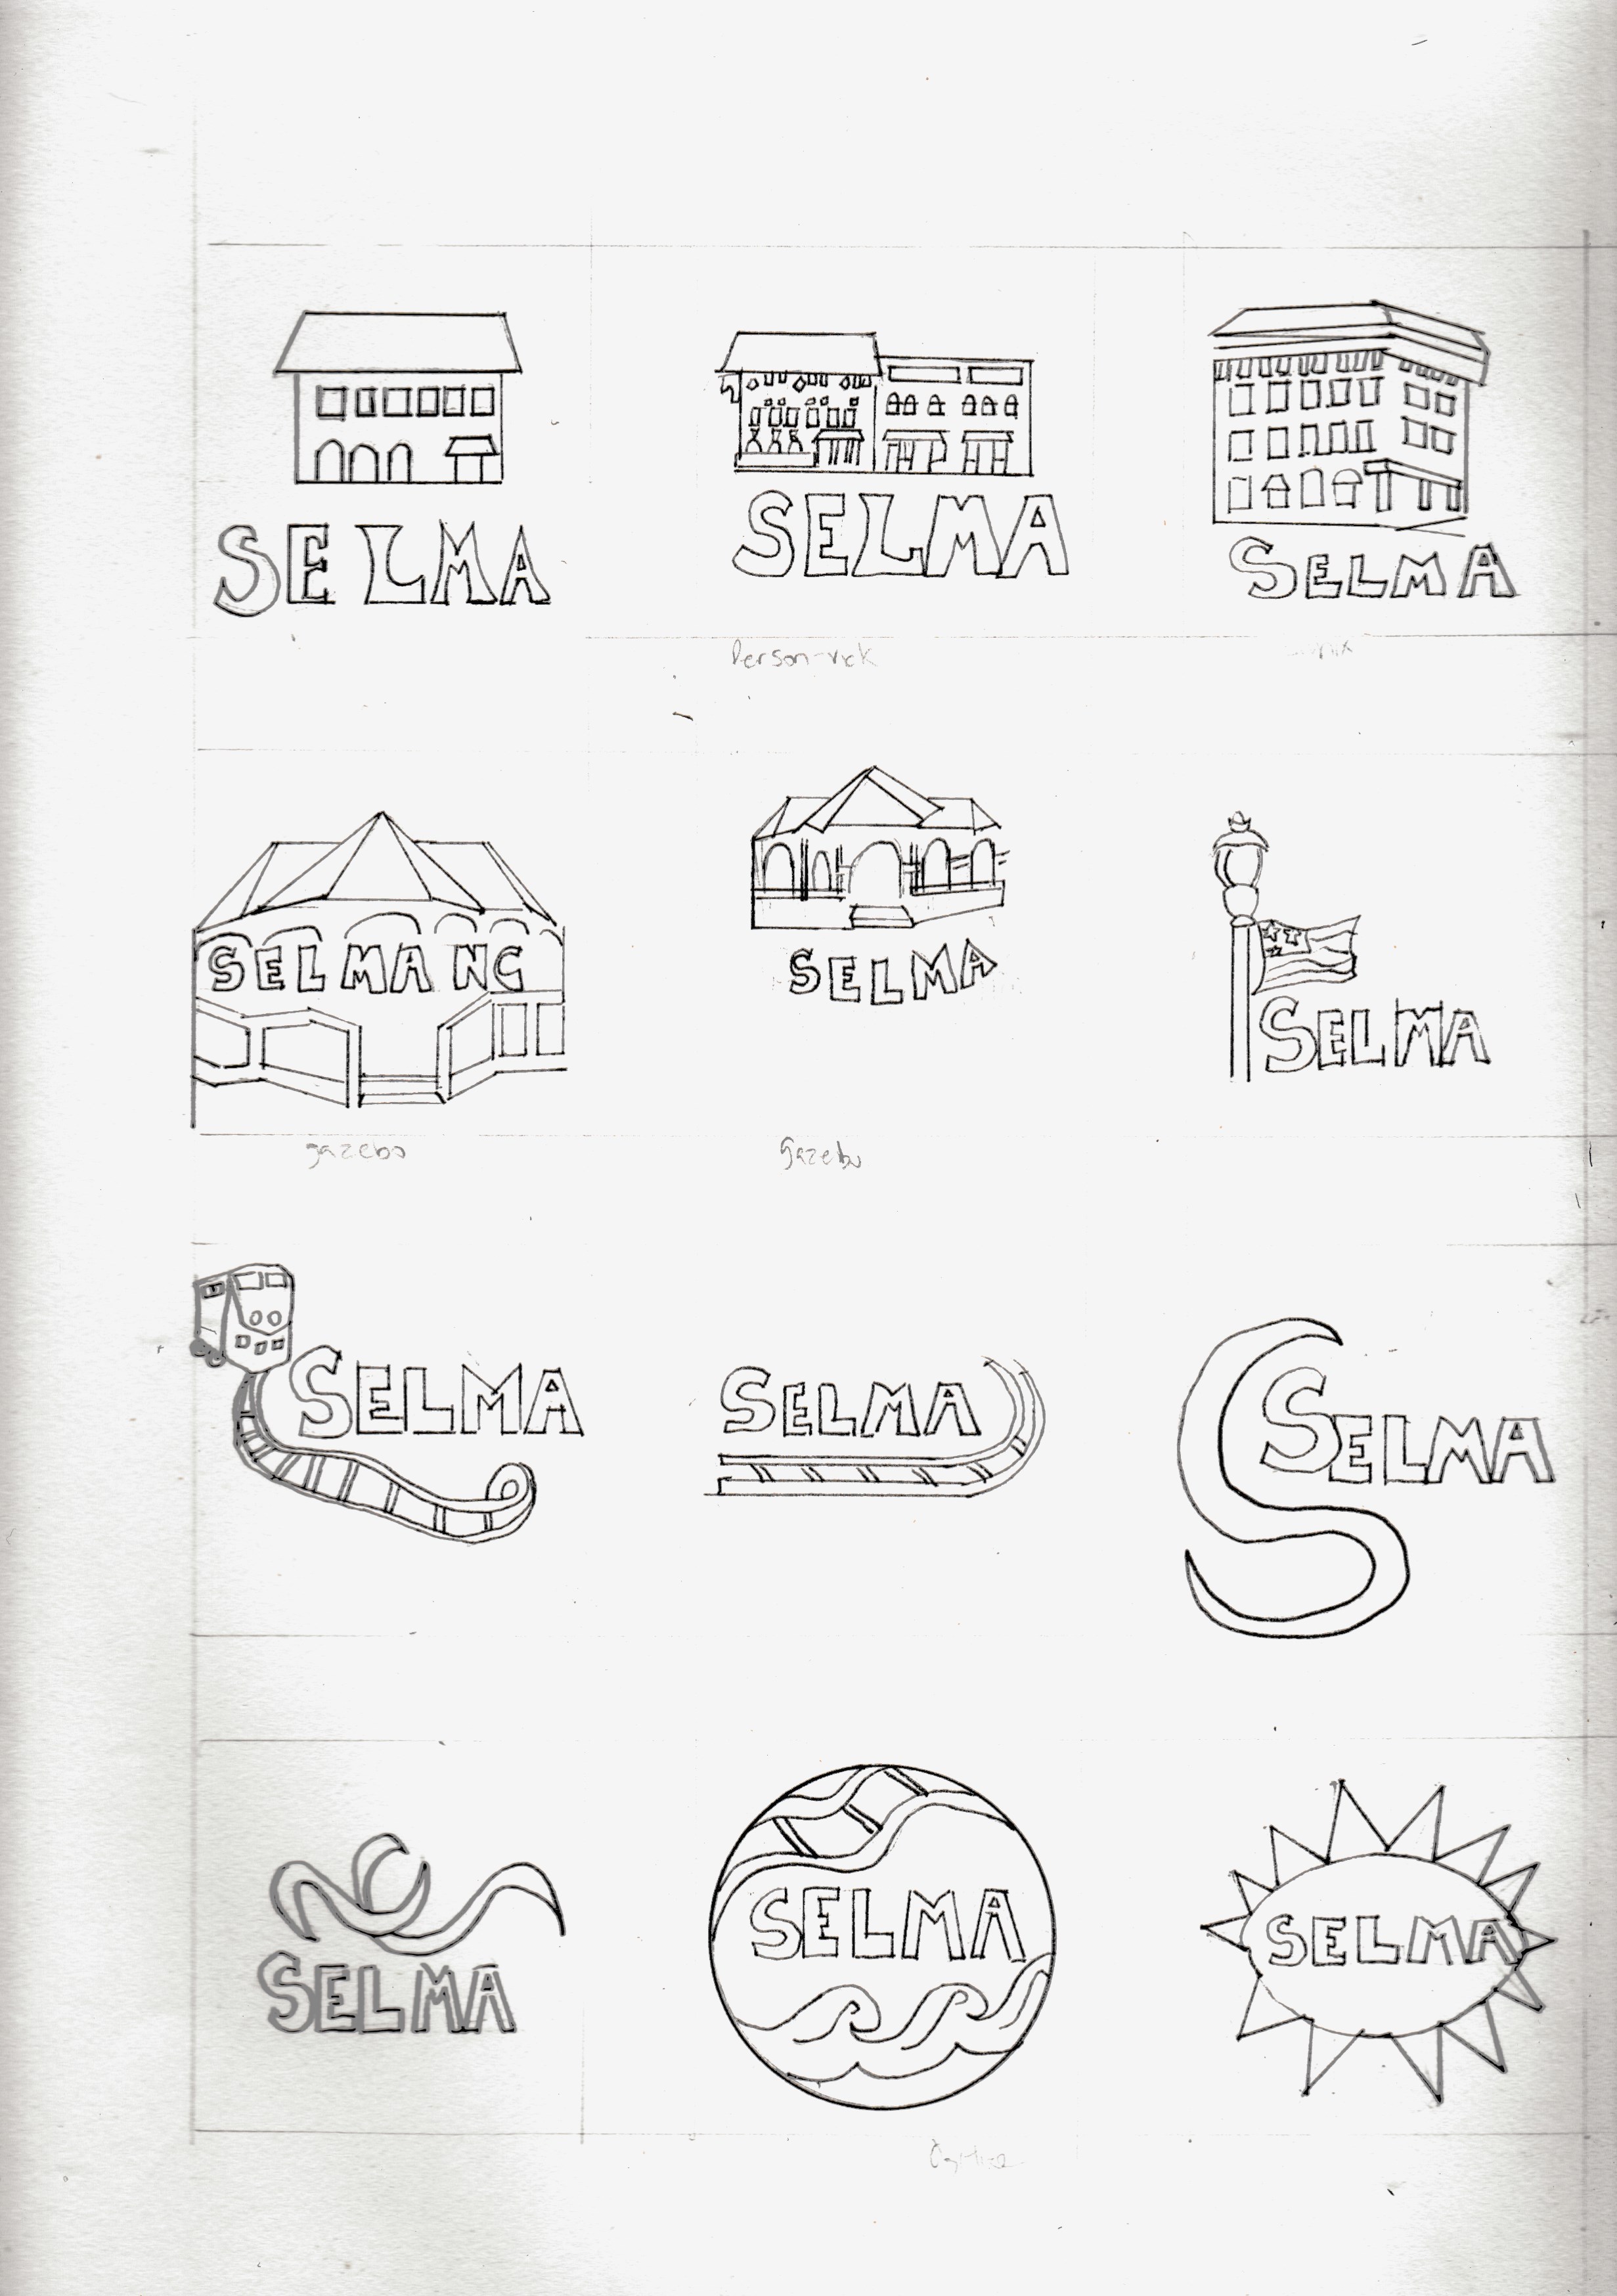 SELMA
SELMA
SELMA
Person-rick
SELMA NC
SELMA
SELMA
gazebo
Gazebo
SELMA
SELMA
SELMA
SELMA
SELMA
SELMA